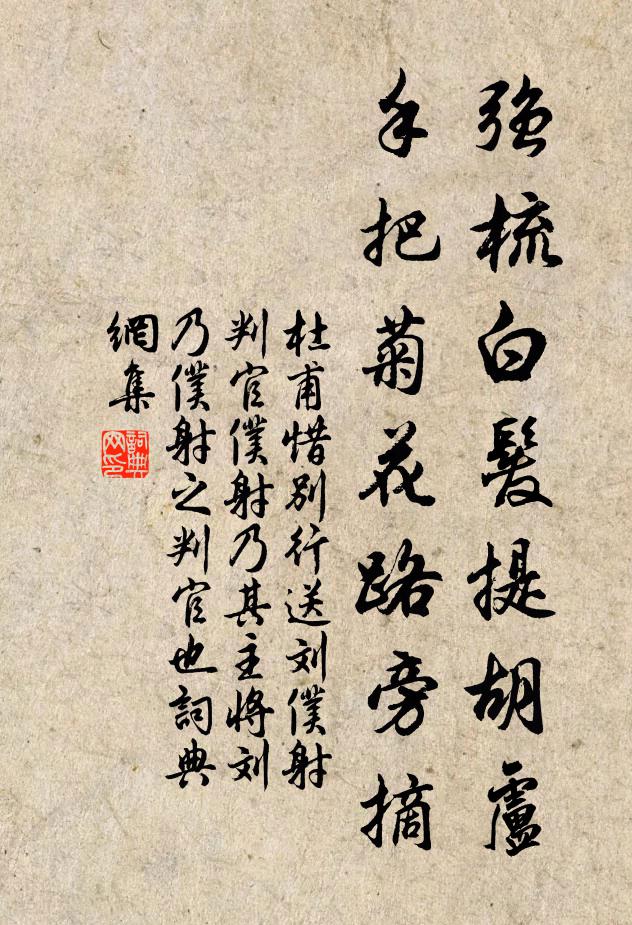 强梳白髮提胡盧
手把菊花路旁摘
杜甫惜別行送刘僕射
判官僕射乃其主將刘
乃僕射之判官也詞典
網集
詞典
网印